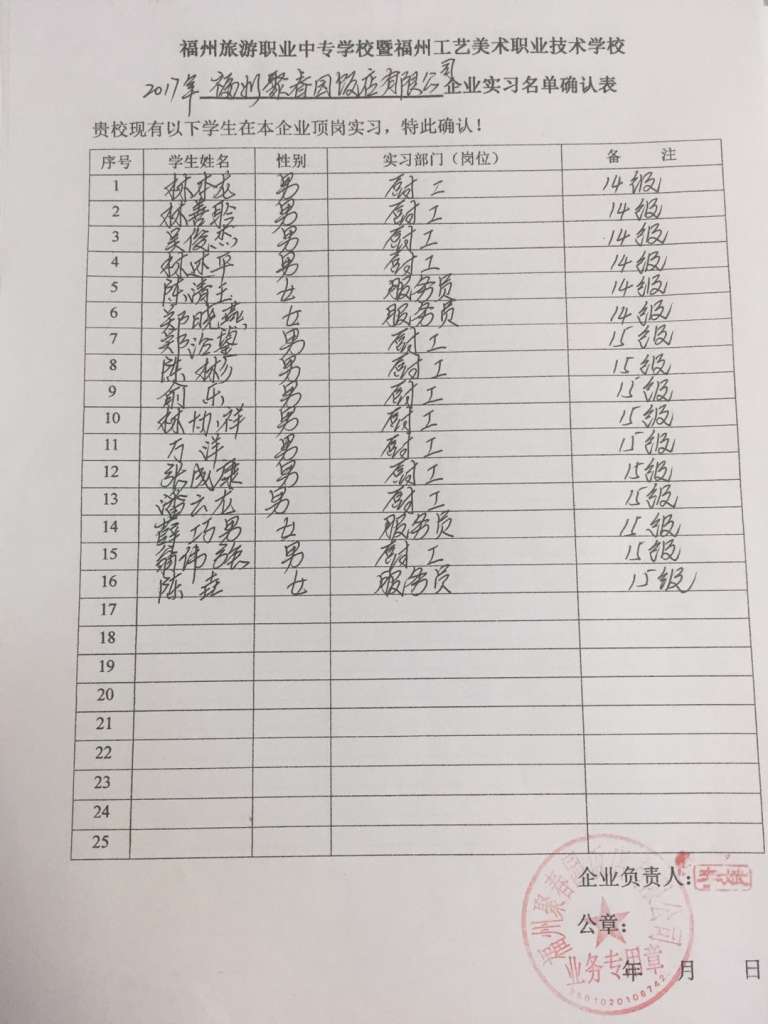 福州旅游职业中专学校暨福州工艺美术职业技术学校
2017年 福州聚春园饭店有限公司 企业实习名单确认表
贵校现有以下学生在本企业顶岗实习，特此确认！
序号 学生姓名 性别 实习部门（岗位） 备 注
1 林本龙 男 厨工 14级
2 林善聆 男 厨工 14级
3 吴俊杰 男 厨工 14级
4 林冰平 男 厨工 14级
5 陈清玉 女 服务员 14级
6 郑晓燕 女 服务员 14级
7 郑治 男 厨工 15级
8 陈彬 男 厨工 15级
9 俞乐 男 厨工 15级
10 林协祥 男 厨工 15级
11 万洋 男 厨工 15级
12 张成康 男 厨工 15级
13 潘云龙 男 厨工 15级
14 薛巧男 女 服务员 15级
15 翁伟强 男 厨工 15级
16 陈垚 女 服务员 15级
17
18
19
20
21
22
23
24
25
企业负责人：
公章：
年 月 日
福州聚春园 公司
业务专用章